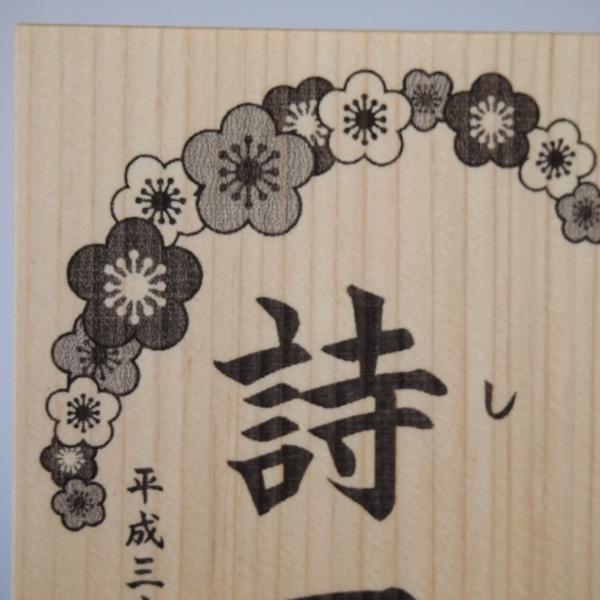 し
詩
平成三